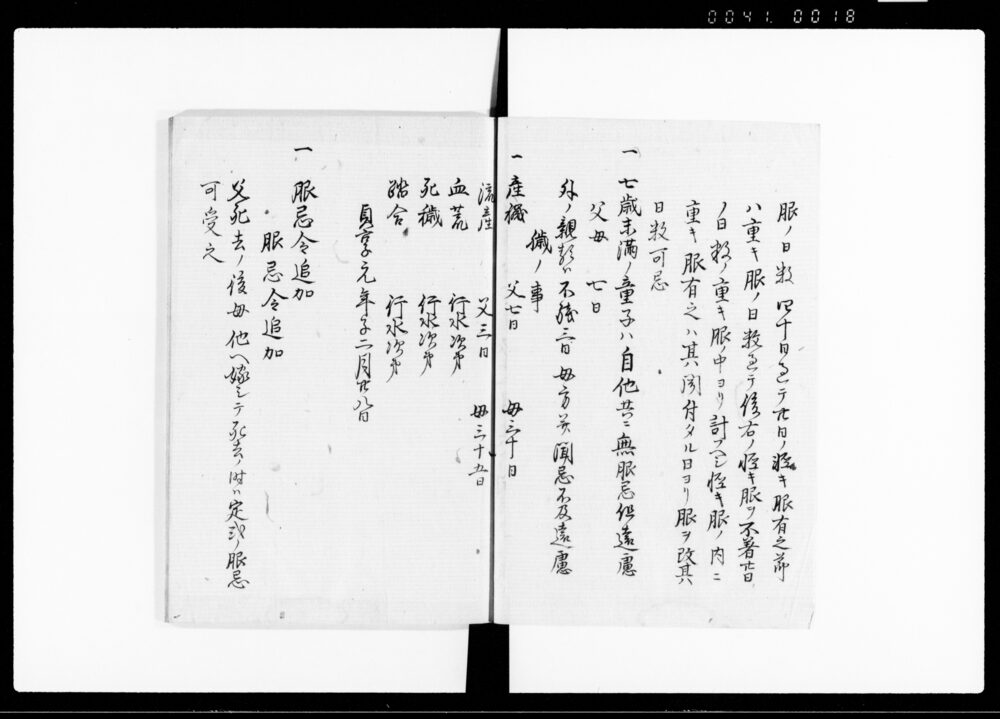 0041. 0018
服ノ日数四十日過テ廿日ノ軽キ服有之節
ハ重キ服ノ日数過テ後右ノ軽キ服ヲ不着廿日
ノ日数ノ重キ服ノ中ヨリ計ヘシ軽キ服ノ内ニ
重キ服有之ハ其聞付タル日ヨリ服ヲ改其
日数可忌
一 七歳未満ノ童子ハ自他共ニ無服忌但遠慮
父母 七日
外ノ親類ハ不残三日母方并聞忌不及遠慮
穢ノ事
一 産穢 父七日 母三十日
流産 父三日 母三十五日
血荒 行水次第
死穢 行水次第
踏合 行水次第
貞享元年子二月廿八日
一 服忌令追加
服忌令追加
父死去ノ後母他ヘ嫁シテ死去ノ時ハ定式ノ服忌
可受之